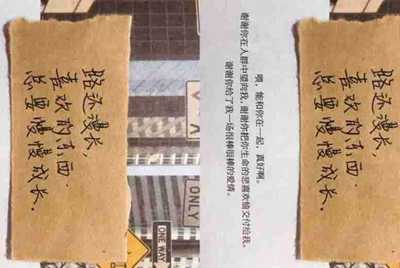 路还漫长，
喜欢的东西
总要慢慢成长。
ONLY
ONE WAY
喂，能和你在一起，真好啊。
谢谢你在人群中望向我，谢谢你把你生命的悲喜欢愉交付给我。
谢谢你给了我一场很棒很棒的爱情。
路还漫长，
喜欢的东西
总要慢慢成长。